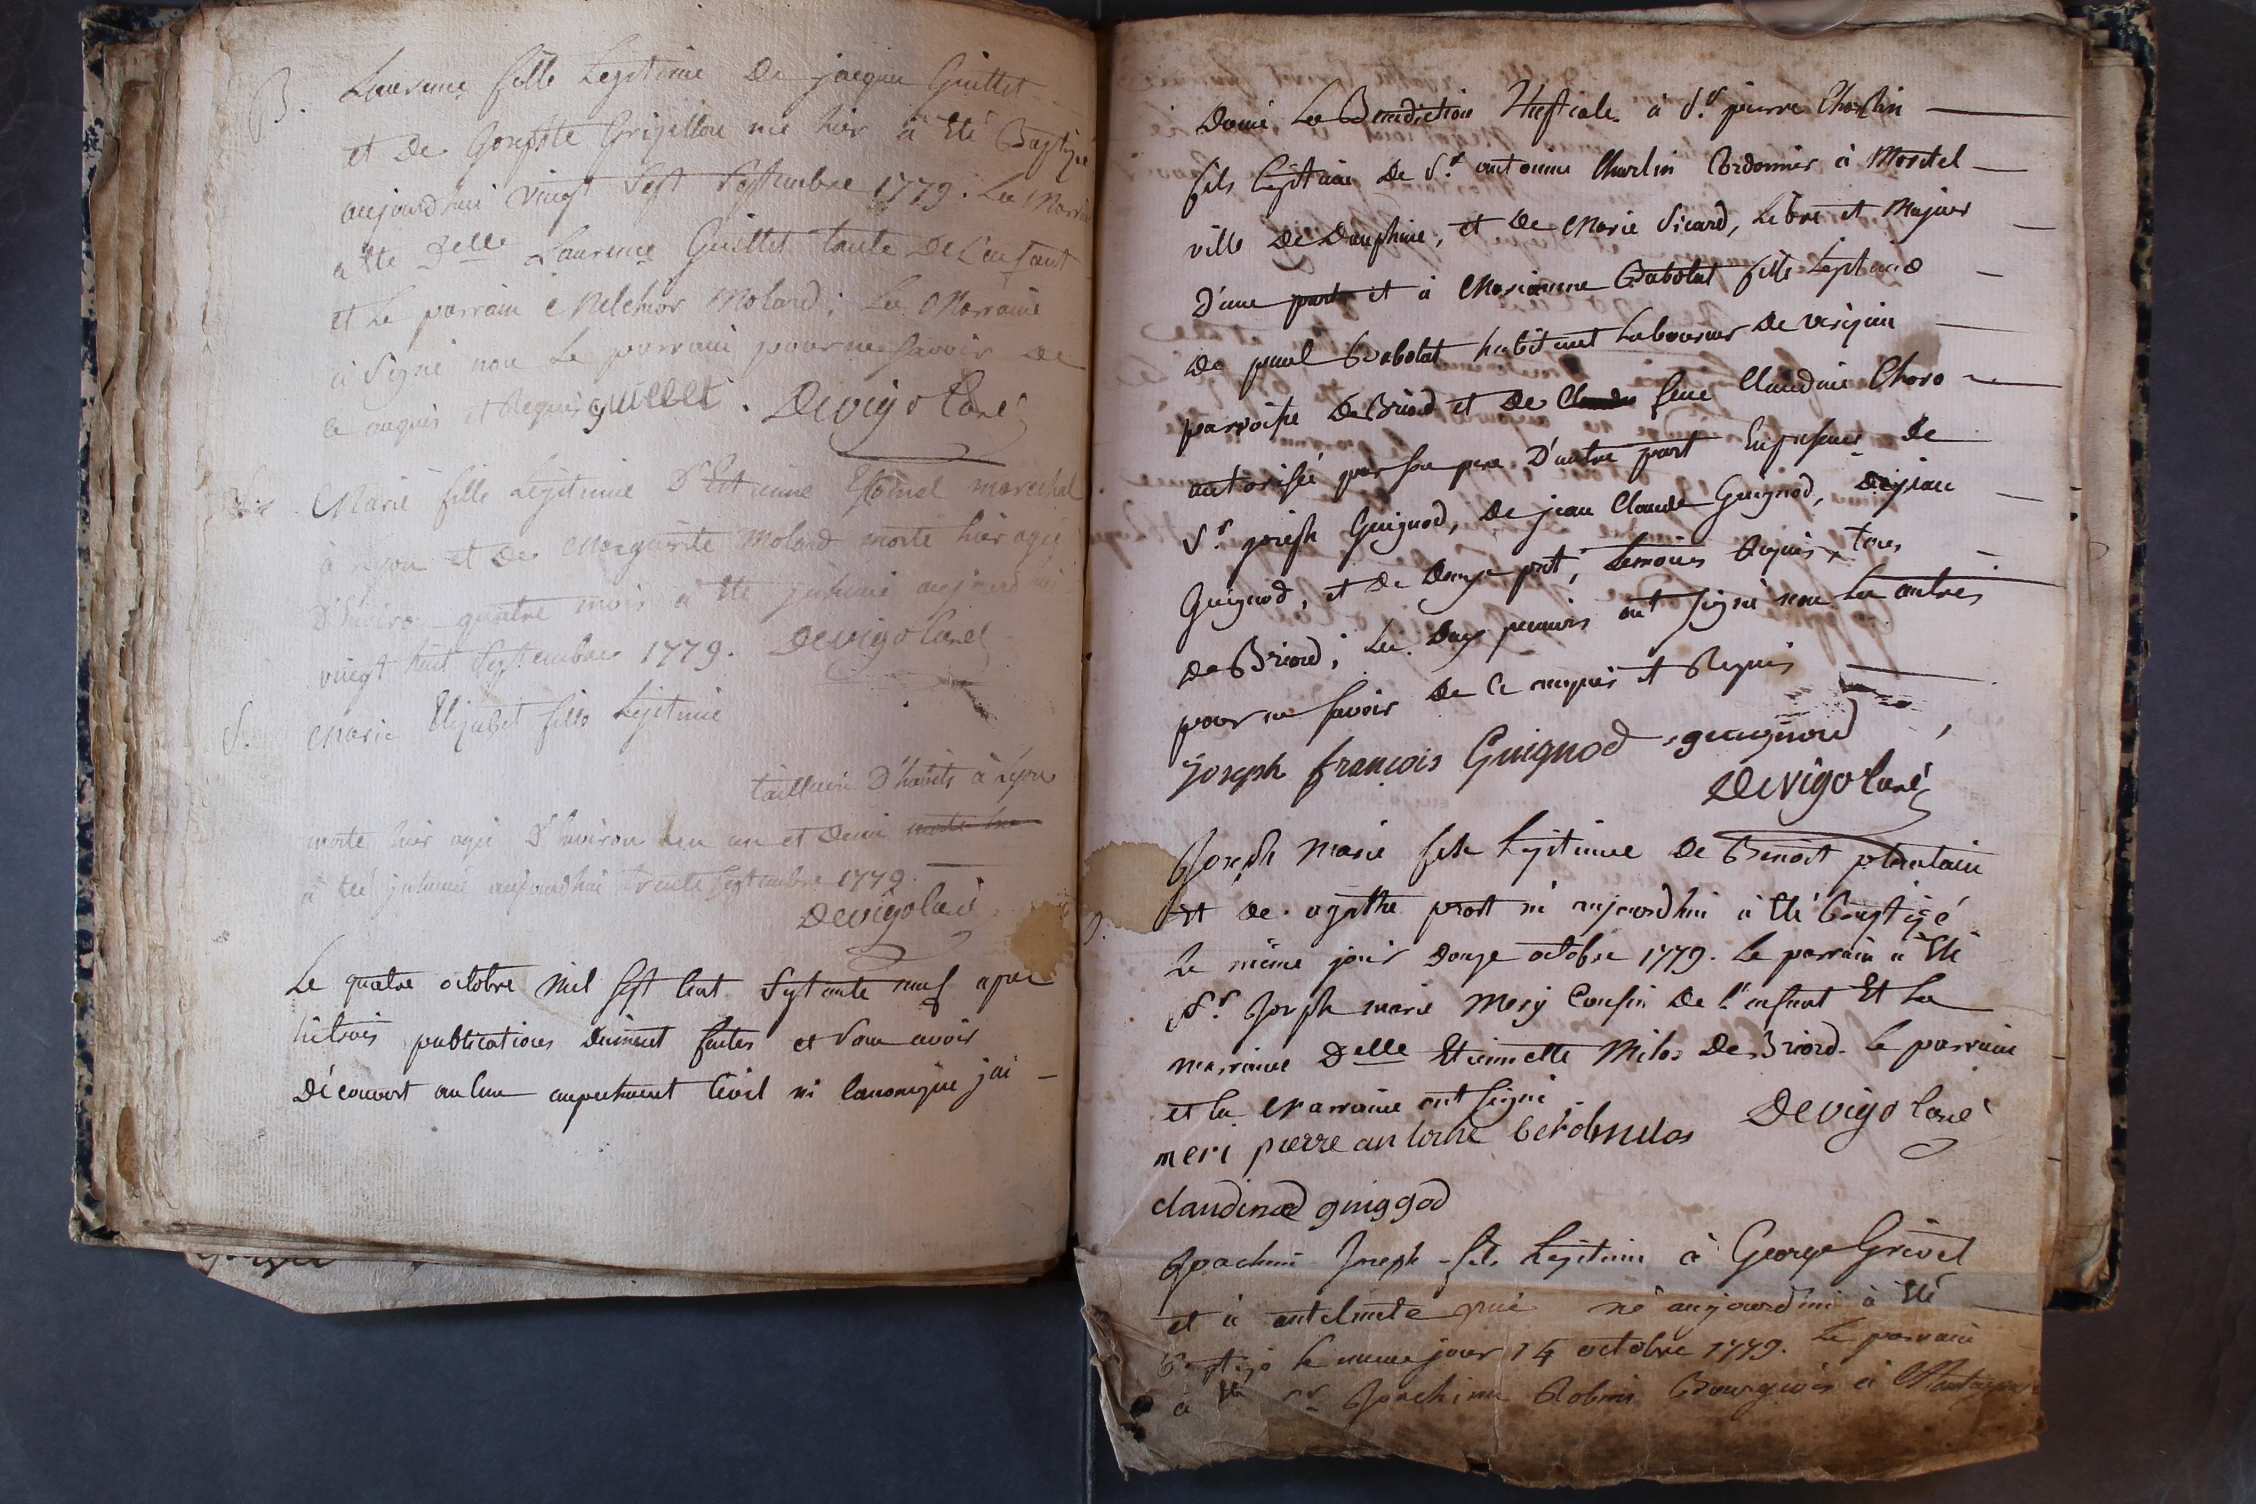 B. Laurence fille Legitime De jacque Guillet
et De Josephte Grizillon née hier à Eté Baptizée
aujourdhui vingt Sept Septembre 1779. La Marraine
a Ete Delle Laurence Guillet tante De L'enfant
et Le parrain Melchior Molard; La Marraine
à Signé non Le parrain pour ne savoir De
ce enquis et Requis guillet. Devigo Curé
Marie fille Legitime D'Etienne marechal
à Lyon et De Margueritte Molard morte hier agée
D'Environ quatre mois a Ete inhumé aujourdhui
vingt huit Septembre 1779. Devigo Curé
S. Marie Elizabet fille Legitime
tailleur D'habits à Lyon
morte hier agée D'Environ un an et Demi
a Eté inhumée aujourdhui trente Septembre 1779.
Devigo Curé
Le quatre octobre Mil Sept Cent Septante neuf apres
les trois publications Duement faites et Sans avoir
Découvert aucun empechement Civil ni Canonique jai
Donné La Benediction Nuptiale à Sr. pierre Charlin
fils legitime De Sr. antoine Charlin Cordonnier à Morestel
ville De Dauphiné, et De Marie Sicard, Libre et Majeur
D'une part et à Marianne Babolat fille Legitime
De paul Babolat habitant Laboureur De verizieu
parroisse De Briord et De feue Claudine Choro
autorisée par son pere D'autre part En presence De
Sr. joseph Guignod, De jean Claude Guignod, De jean
Guignod, et De Denys prat, temoins Requis, tous
De Briord; Les Deux premiers ont signé non Les autres
pour ne savoir De Ce enquis et Requis
joseph françois Guignod guignod
Devigo Curé
B. Joseph Marie fils Legitime De Benoit plantain
Et de agathe prost né aujourdhui à Eté Baptizé
Le même jour Douze octobre 1779. Le parrain à Eté
Sr. Joseph marie Mery Cousin De l'enfant Et La
marraine Delle Etiennette Milos De Briord. Le parrain
et la Marraine ont signé
meri pierre antoine milos Devigo Curé
claudine guiggod
Joachim Joseph fils Legitime à George Grivel
et à antelmette né aujourdhui à Eté
Baptizé le meme jour 14 octobre 1779. Le parrain
à Ete Sr. Joachim Robin Bourgeois à